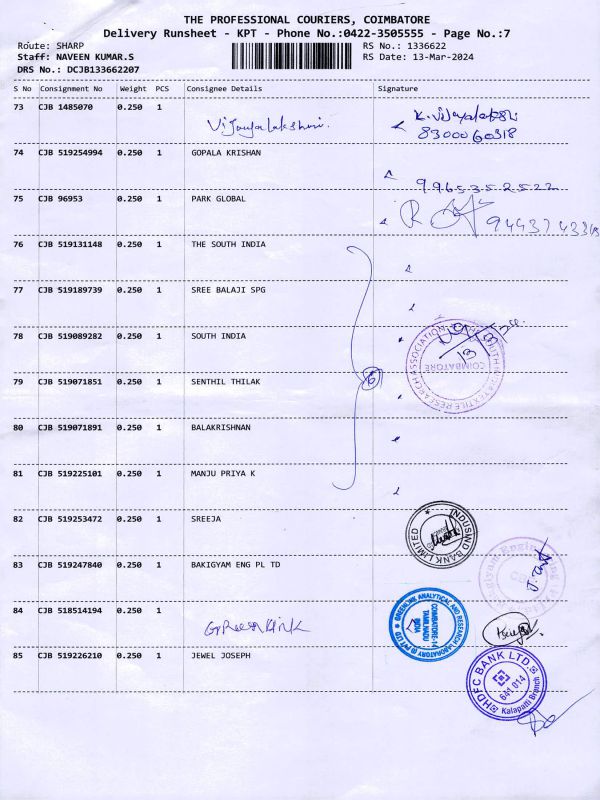 THE PROFESSIONAL COURIERS, COIMBATORE
Delivery Runsheet - KPT - Phone No.:0422-3505555 - Page No.:7
Route: SHARP RS No.: 1336622
Staff: NAVEEN KUMAR.S RS Date: 13-Mar-2024
DRS No.: DCJB133662207
S No Consignment No Weight PCS Consignee Details Signature
73 CJB 1485070 0.250 1 Vijayalakshmi. K. Vijayalakshmi
8300060318
74 CJB 519254994 0.250 1 GOPALA KRISHAN
9965352522
75 CJB 96953 0.250 1 PARK GLOBAL
76 CJB 519131148 0.250 1 THE SOUTH INDIA
77 CJB 519189739 0.250 1 SREE BALAJI SPG
78 CJB 519089282 0.250 1 SOUTH INDIA
79 CJB 519071851 0.250 1 SENTHIL THILAK
6
COIMBATORE
80 CJB 519071891 0.250 1 BALAKRISHNAN
81 CJB 519225101 0.250 1 MANJU PRIYA K
82 CJB 519253472 0.250 1 SREEJA
INDUSIND BANK LIMITED
83 CJB 519247840 0.250 1 BAKIGYAM ENG PL TD
84 CJB 518514194 0.250 1 Greenlink
GREENLINK ANALYTICAL AND RESEARCH LABORATORY (I) PVT LTD
COIMBATORE-14
TAMILNADU
INDIA
85 CJB 519226210 0.250 1 JEWEL JOSEPH
HDFC BANK LTD.
641 014
Kalapatti Branch